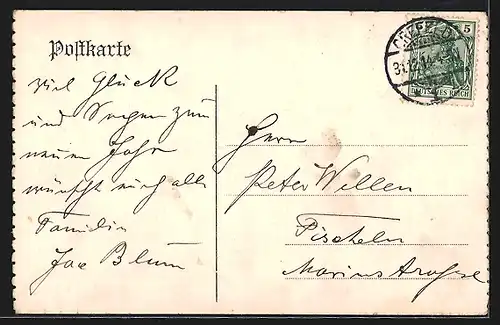 Postkarte
viel Glück
und Segen zum
neuen Jahr
wünscht euch alle
Familie
Jac Blum
CREFELD
31.12.14
5
DEUTSCHES REICH
Herrn
Peter Willen
Fischeln
Marienstrasse